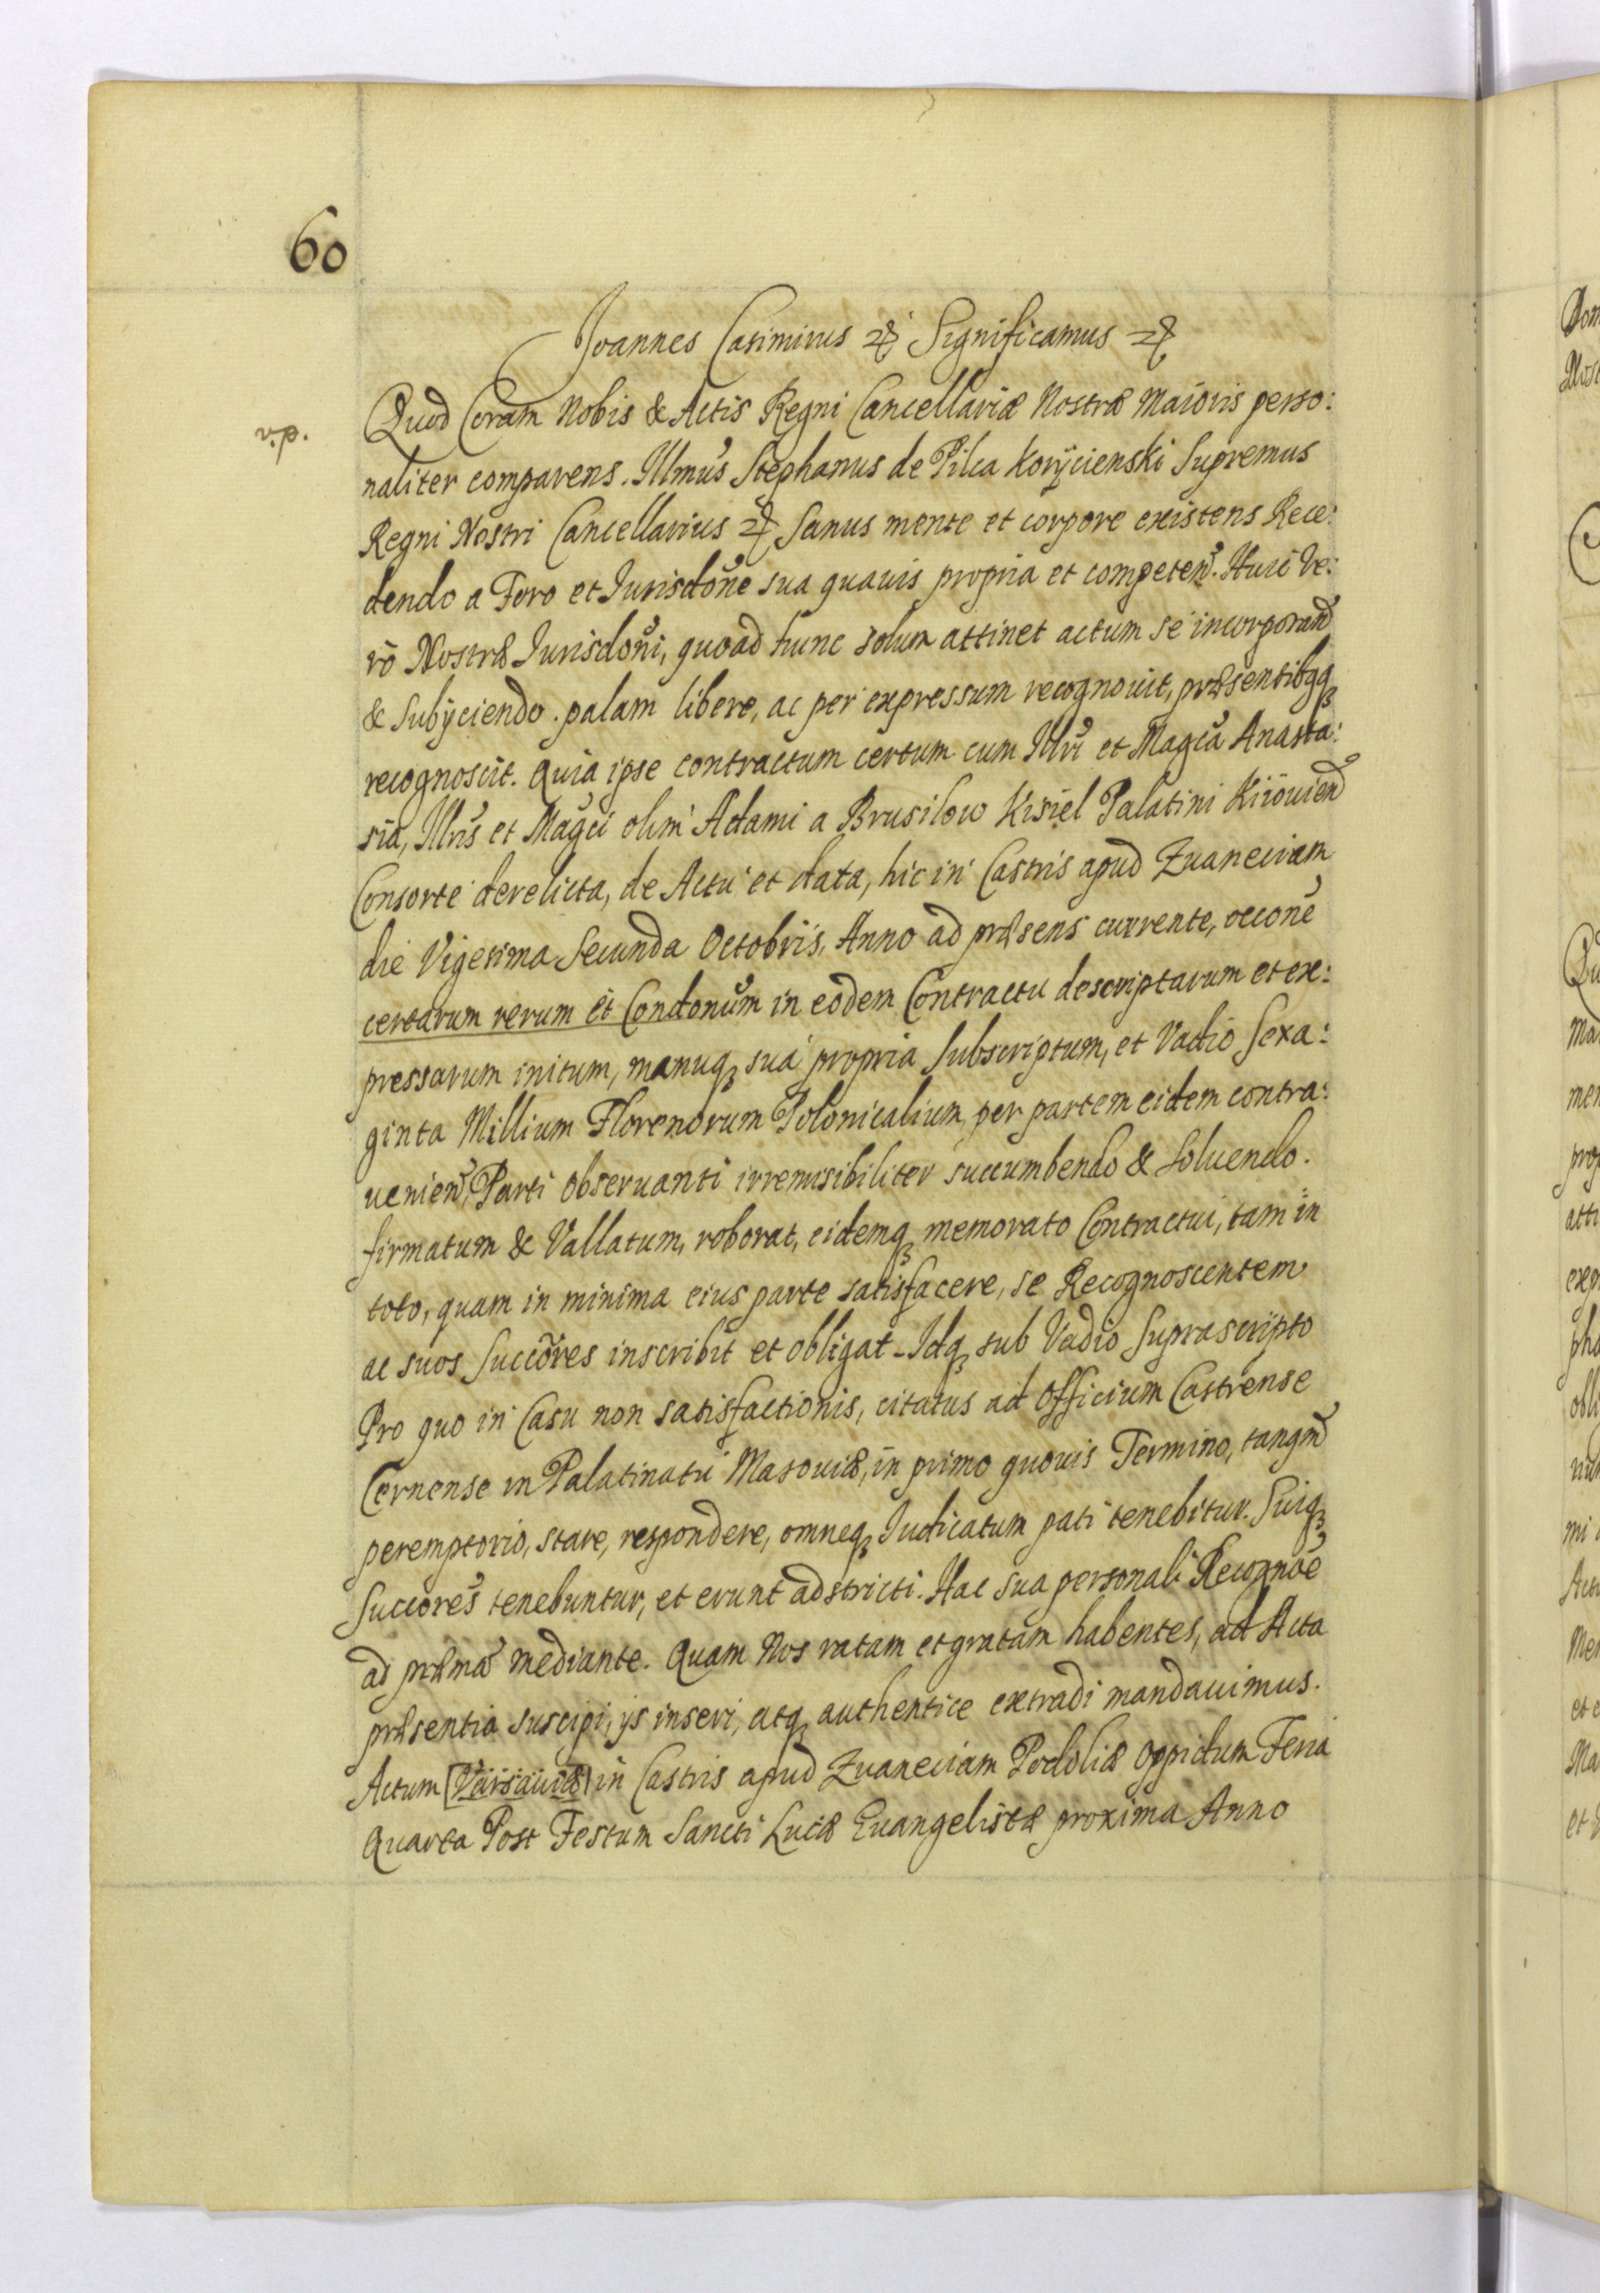 60
Joannes Casimirus etc Significamus etc
v.p.
Quod Coram Nobis & Actis Regni Cancellariæ Nostræ Maioris perso:
naliter comparens. Illmus Stephanus de Pilca Korycienski Supremus
Regni Nostri Cancellarius etc Sanus mente et corpore existens Rece:
dendo a Foro et Jurisdone sua quavis propria et competen. Huic Ve:
ro Nostræ Jurisdoni, quoad hunc solum attinet actum se incorporand
& Subyciendo. palam libere, ac per expressum recognouit, præsentibqq
recognoscit. Quia ipse contractum certum cum Illri et Magca Anasta:
sia, Illris et Magci olim Adami a Brusilow Kisiel Palatini Kiiouien
Consorte derelicta, de Actu et data, hic in Castris apud Zvaneciam
die Vigesima Secunda Octobris, Anno ad præsens currente, occone
certarum rerum et Condonum in eodem Contractu descriptarum et ex:
pressarum initum, manuq sua propria Subscriptum, et Vadio Sexa:
ginta Millium Florenorum Polonicalium per partem eidem contra:
uenien, Parti Obseruanti irremisibiliter succumbendo & Soluendo.
firmatum & Vallatum, roborat, eidemq memorato Contractui, tam in
toto, quam in minima eius parte satisfacere, se Recognoscentem
ac suos Succores inscribit et obligat_Idq sub Vadio Suprascripto
Pro quo in Casu non satisfactionis, citatus ad Officium Castrense
Cernense in Palatinatu Masouiæ, in primo quouis Termino, tanqm
peremptorio, stare, respondere, omneq Judicatum pati tenebitur. Suiq
Succores tenebuntur, et erunt adstricti. Hac sua personali Recognoe
ad præma mediante. Quam Nos ratam et gratam habentes, ad Acta
præsentia suscipi, ijs inseri, atq authentice extradi mandauimus.
Actum [Varsauiæ] in Castris apud Zvaneciam Podoliæ Oppidum Feria
Quarta Post Festum Sancti Lucæ Euangelistæ proxima Anno